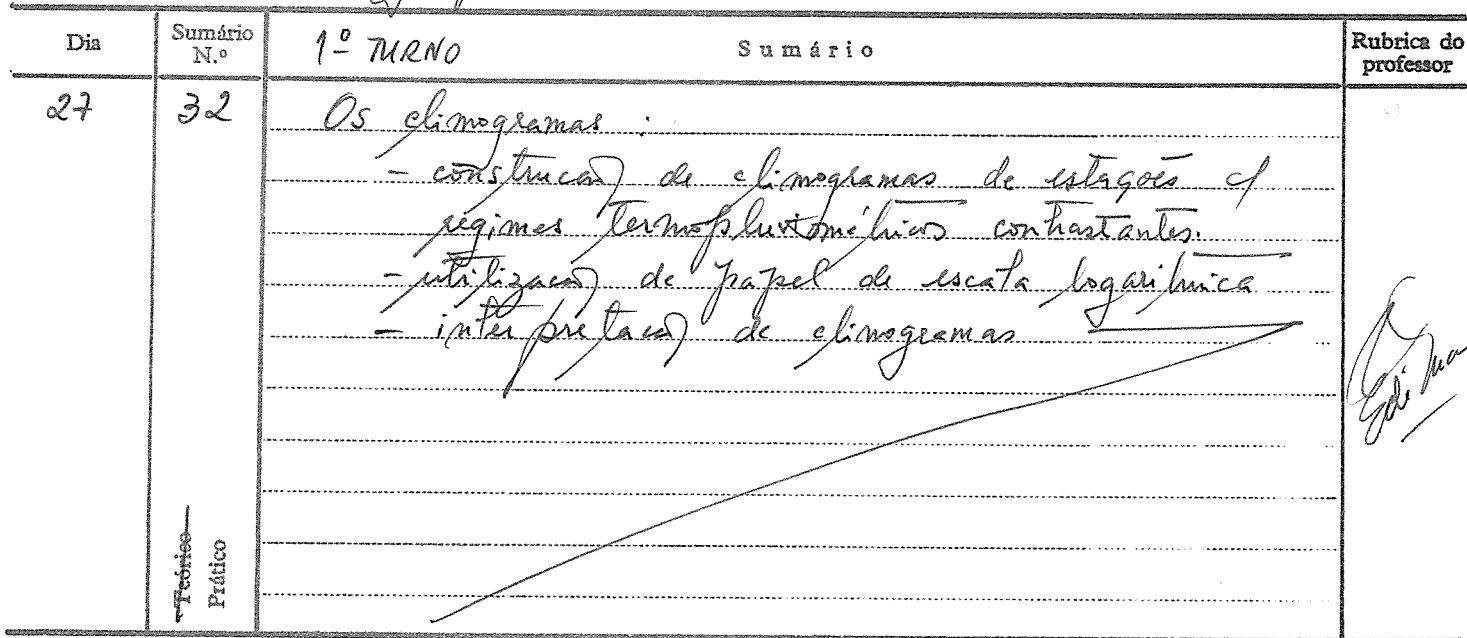 Dia
Sumário N.º
1º TURNO
Sumário
Rubrica do professor
27
32
Os climogramas :
- construcão de climogramas de estações c/
regimes termopluviométricos contrastantes.
- utilizacão de papel de escala logarítmica
- interpretacão de climogramas
Teórico
Prático